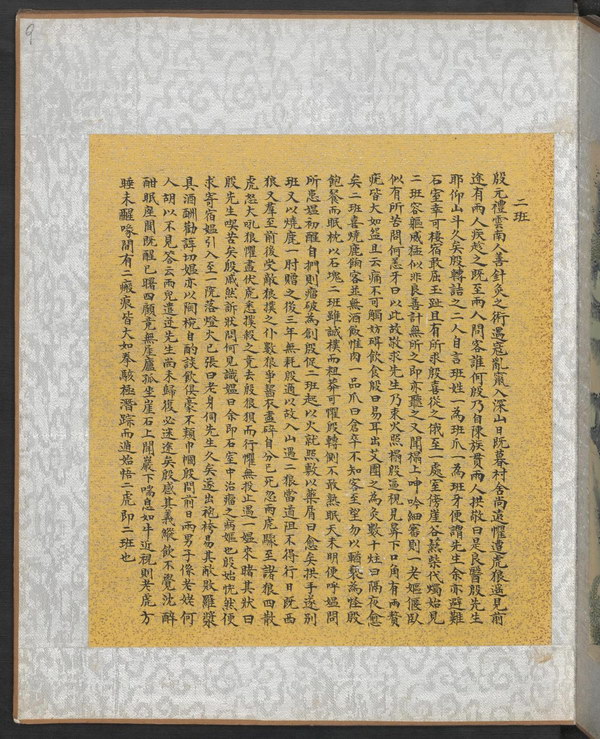 9
二班
殷元禮雲南人善針灸之術遇寇亂竄入深山日既暮村舍尚遠懼遭虎狼遙見前
途有兩人疾趁之既至兩人問客誰何殷乃自陳族貫兩人拱敬曰是良醫殷先生
耶仰山斗久矣殷轉詰之二人自言班姓一為班爪一為班牙便謂先生余亦避難
石室幸可棲宿敢屈玉趾且有所求殷喜從之俄至一處室傍崖谷爇柴代燭始見
二班容軀威猛似非良善計無所之即亦聽之又聞榻上呻吟細審則一老嫗僵臥
似有所苦問何恙牙曰以此故敬求先生乃束火照榻殷逼視見鼻下口角有兩贅
疣皆大如盌且云痛不可觸妨碍飲食殷曰易耳出艾團之為灸數十壯曰隔夜愈
矣二班喜燒鹿餉客並無酒飯惟肉一品爪曰倉卒不知客至望勿以輶褻為怪殷
飽餐而眠枕以石塊二班雖誠樸而粗莽可懼殷轉側不敢熟眠天未明便呼嫗問
所患嫗初醒自捫則瘤破為創殷促二班起以火就照敷以藥屑曰愈矣拱手遂別
班又以燒鹿一肘贈之後三年無耗殷適以故入山遇二狼當道阻不得行日既西
狼又羣至前後受敵狼撲之仆數狼爭齧衣盡碎自分已死忽兩虎驟至諸狼四散
虎怒大吼狼懼盡伏虎悉撲殺之竟去殷狼狽而行懼無投止遇一媼來睹其狀曰
殷先生喫苦矣殷戚然訴狀問何見識媼曰余即石室中治瘤之病嫗也殷始恍然便
求寄宿媼引入至一院落燈火已張曰老身伺先生久矣遂出袍袴易其敝敗羅漿
具酒酬勸諄切媼亦以陶椀自酌談飲俱豪不類巾幗殷問前日兩男子係老姥何
人胡以不見答云兩兒遣逆先生尚未歸復必迷途矣殷感其義縱飲不覺沈醉
酣眠座間既醒已曙四顧竟無廬孤坐崖石上聞巖下喘息如牛近視則老虎方
睡未醒喙間有二瘢痕皆大如拳駭極潛踪而遁始悟二虎即二班也